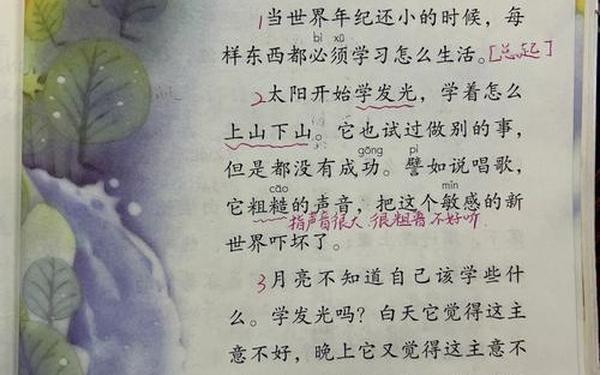 1当世界年纪还小的时候，每
bì xū
样东西都必须学习怎么生活。[总起]
2太阳开始学发光，学着怎么
上山下山。它也试过做别的事，
gōng pì
但是都没有成功。譬如说唱歌，
cāo mǐn
它粗糙的声音，把这个敏感的新
指声音很大 很粗 不好听
世界吓坏了。
3月亮不知道自己该学些什
么。学发光吗？白天它觉得这主
意不好，晚上它又觉得这主意不